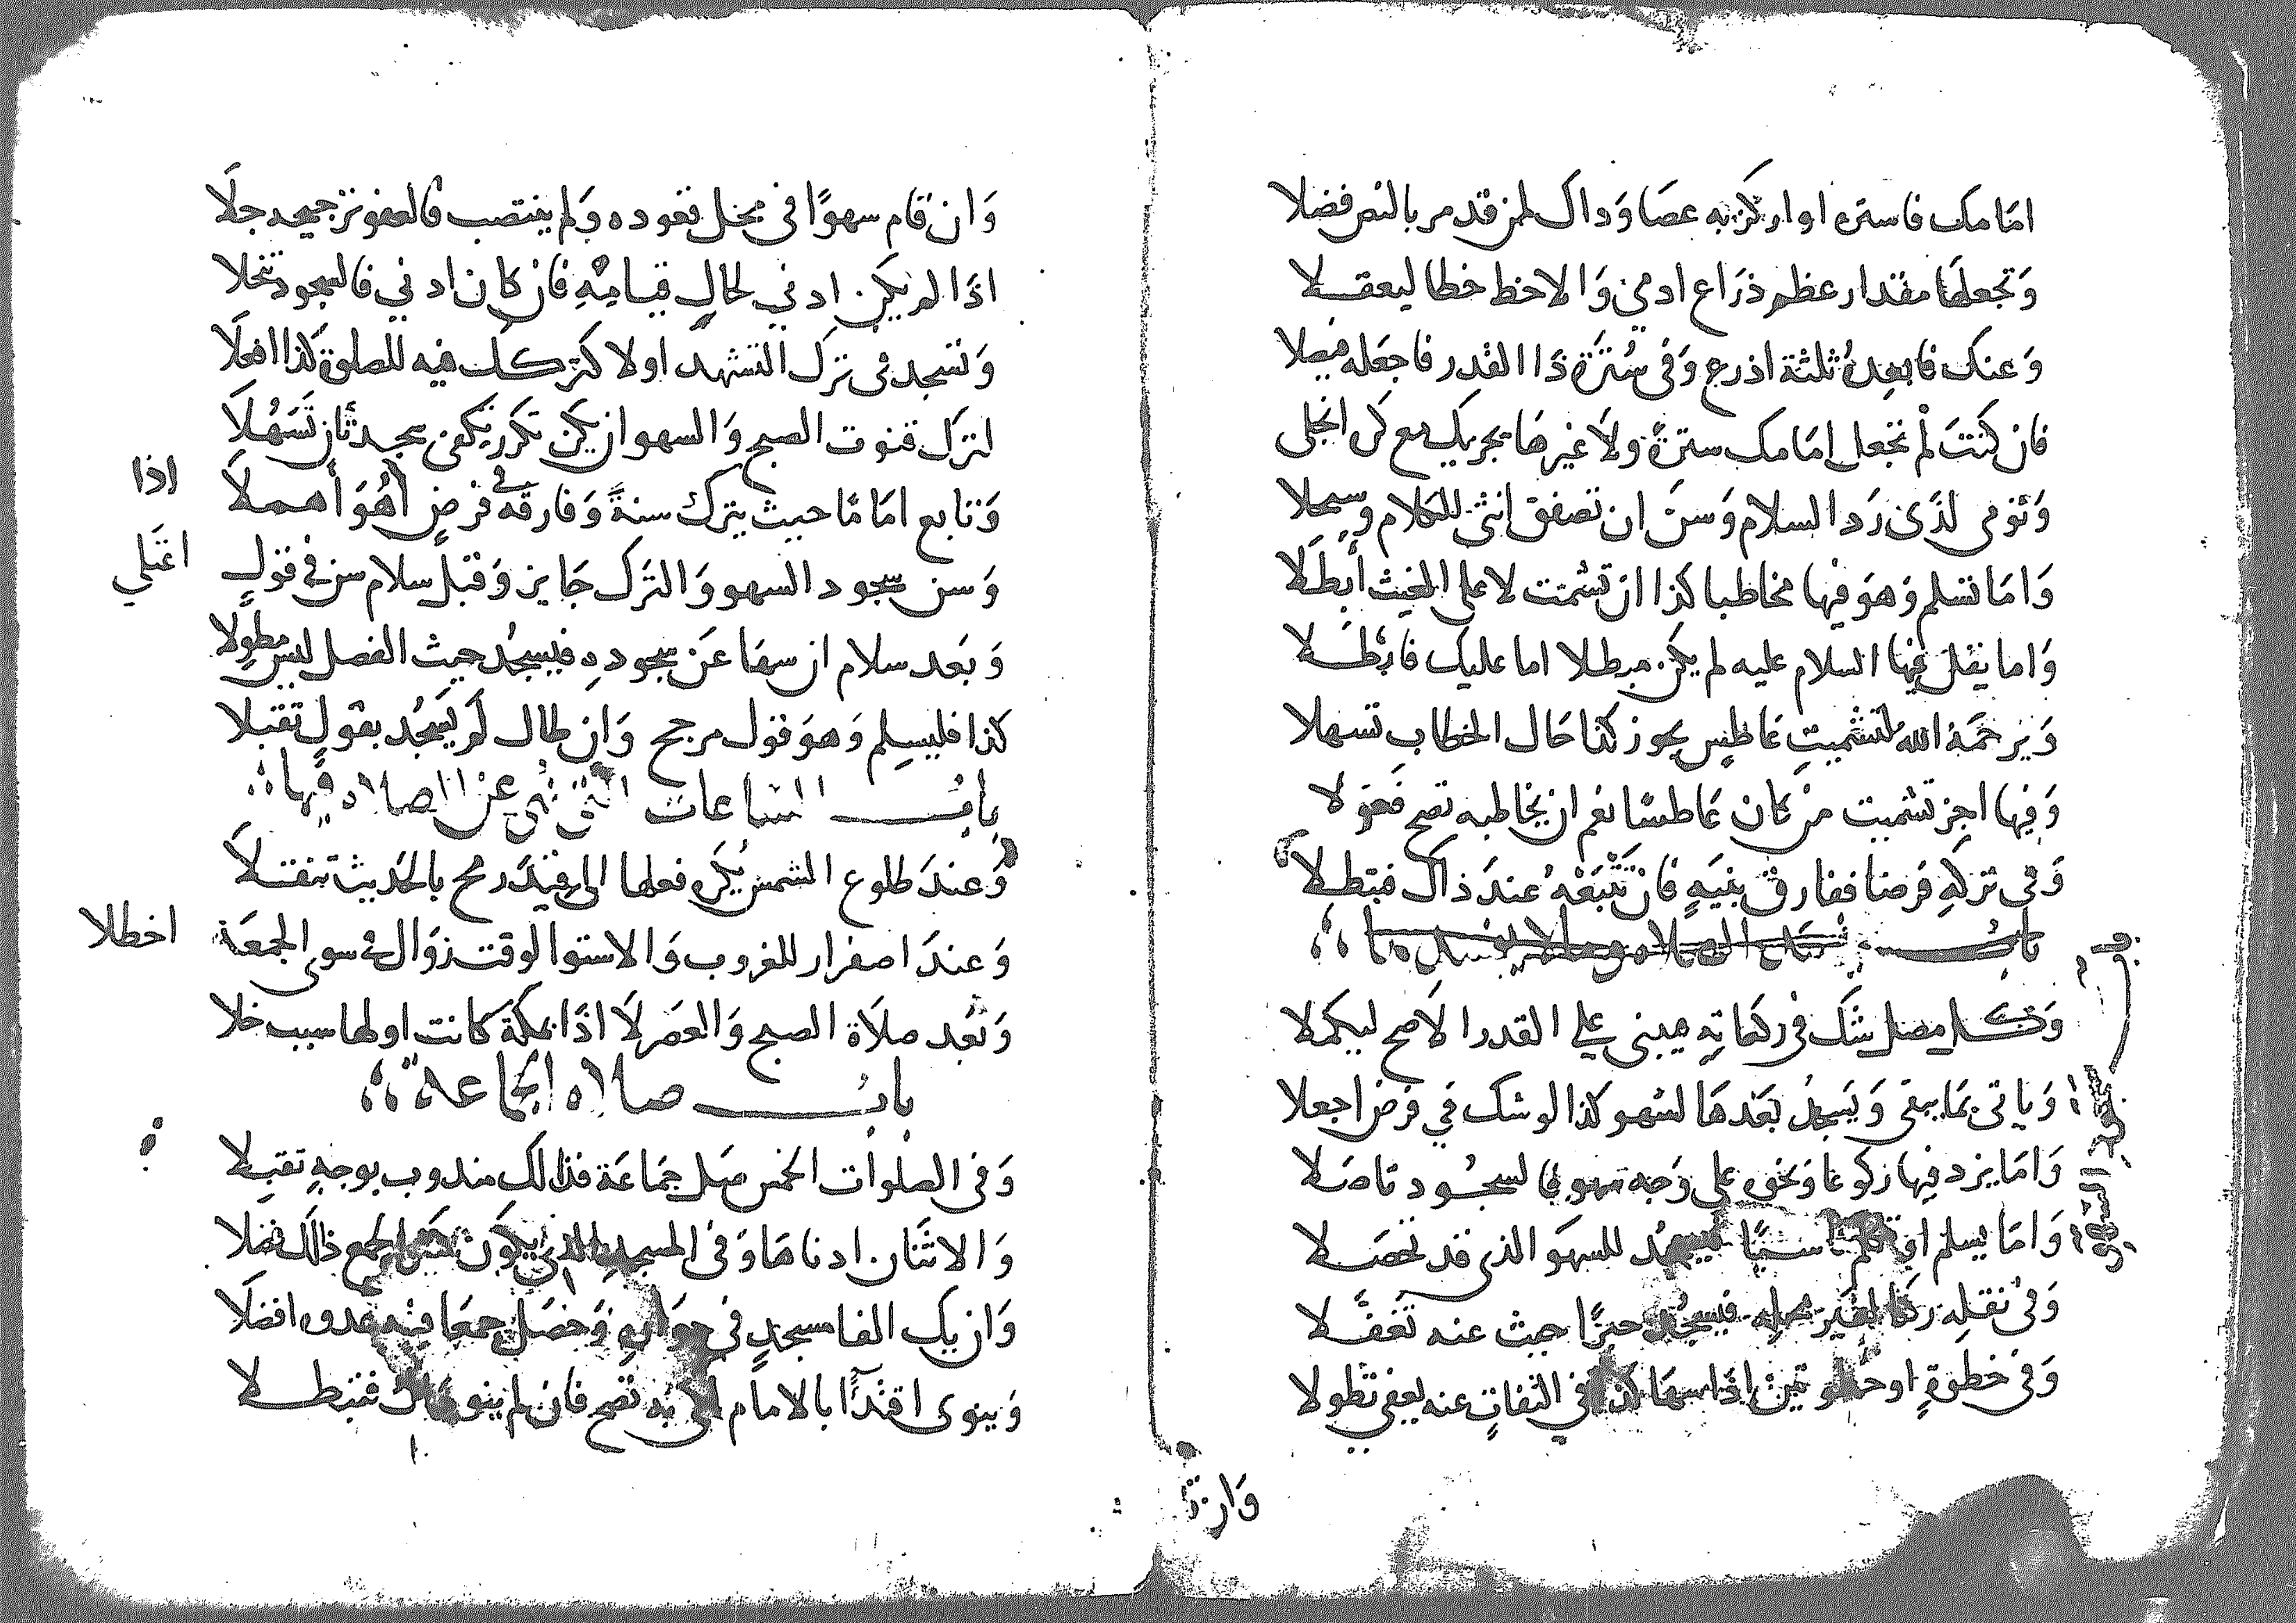 امَامك فاستره او اركز به عصَا وَداك لمن قد مر بالنص فضلا
وَتجعلهَا مقدار عظم ذرَاع ادمي وَالا خط خطا ليعقلا
وَعنك فابعدهُ ثلثة اذرع وَفي سُترَة ذَا القدر فاجعَله فيصلا
فان كنتَ لم تجعل امَامك سترةً ولَا غيرهَا يجزيك مع كن انجلى
وَتومى لذى رَد السلام وَسنَ ان تصفق انثى للكلام وسبحلا
وَامَا تسلم وَهوَ فيها مخاطبا كذا ان تشمت لا على الغيث أبطَلا
وَاما يقل فيها السلام عليه لم يكن مبطلا اما عليك فابطلا
وَيرحمَهُ الله لتشميتِ عَاطِسٍ يجوز كذا حَال الخطابِ تسهلا
وَفيها اجِز تشميت من كان عَاطسًا نعم ان يخاطبه تصح فعَولا
وَفي تركهِ فرضا ففارق بنيَهٍ فان تَتبَعْهُ عندَ ذاك فتبطلا
بابُ
وَكل مصل شَك في ركعَاتِهِ فيبنى علي القدر الاصح ليكملا
وَياتى بمَا يبقى وَيَسجدُ بَعْدهَا لسهو كذا لو شك في فرض اجعلا
وَامَا يزد فيها ركوعَا وَنحوه على وَجه سهوٍ للسجُود تاصَلا
وَامَا يسلم او تكلم للسهَو الذى قد تحصَلا
وَفي نقلِه ركنا لغير محله فيسجُد حيث عنه تغفَّلا
وَفي خطوَةٍ او خطوتين اذَا سهَا كذا في التفاتٍ عنه يعفي تطولا
باب سجود السهو
وَان
وَان قام سهوًا في محل قعوده وَلم ينتصب فالعفو ترجيحه جلَا
اذَا لم يكن ادني لحالِ قيامِهِ فان كان ادني فالسجود تنخلا
وَتسجد في ترك التشهد اولا كتركك فيه للصلوة كذا افعلَا
لترك قنوت الصبح وَالسهو ان يكن تكرر تكفى سجدتَان تَسَهُلَا
وَتابع امَامًا حيث يترك سنةً وَفارقه في فرضٍ أهُوَ أهملَا
اذا
وَسن سجود السهو وَالترك جَايز وَقبل سلام سن في قولٍ
اعتَلي
وَبَعد سلام ان سهَا عَن سجودهِ فيسجُد حيث الفصل ليس مطولا
كذا فليسلم وَهوَ قول مرجح وَان طال لم يَسجُد بقولٍ تقبلا
بابُ الساعات التي نُهى عن الصلاه فيها
وَعندَ طلوع الشمس يُكرَه فعلها الى قيدَ رمح بالحَديث تنقلَا
وَعندَ اصفرار للغروب وَالاستوا لوقت زوَال في سوى الجمعَة
اخطلا
وَبَعد صلَاة الصبح وَالعصَر لَا اذَا بمكَة كانت اولها سبب خلا
بابُ صلاه الجَماعه
وَفي الصلوات الخمس صَل جمَاعَة فذالك مندوب بوجهٍ تقبلا
وَالاثنَان ادناهَا وَفي المسجد الذى يكون كثير الجمع ذاك فضلا
وَان يك الفا مسجدٍ في جوَاره وَحَصَل جمعَا فيه غدا افضلَا
وَينوى اقتدًا بالامام فان لم ينو ذاك فتبطلا